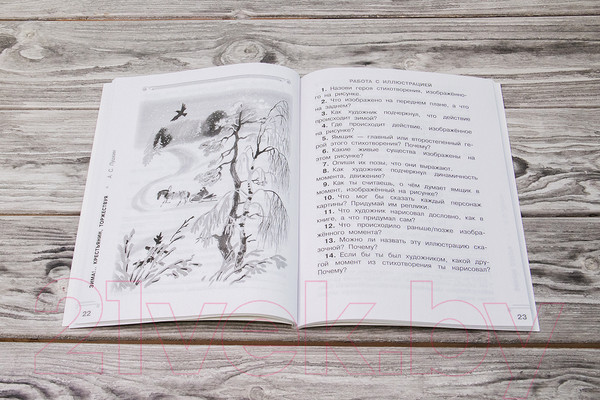 ЗИМА!.. КРЕСТЬЯНИН, ТОРЖЕСТВУЯ
22
РАБОТА С ИЛЛЮСТРАЦИЕЙ
1. Назови героя стихотворения, изображённо-
го на рисунке.
2. Что изображено на переднем плане, а что
на заднем?
3. Как художник подчеркнул, что действие
происходит зимой?
4. Где происходит действие, изображённое
на рисунке?
5. Ямщик – главный или второстепенный ге-
рой этого стихотворения? Почему?
6. Какие живые существа изображены на
этом рисунке?
7. Опиши их позы, что они выражают.
8. Как художник подчеркнул динамичность
момента, движение?
9. Как ты считаешь, о чём думает ямщик в
момент, изображённый на рисунке?
10. Что мог бы сказать каждый персонаж
картины? Придумай им реплики.
11. Что художник нарисовал дословно, как в
книге, а что придумал сам?
12. Что происходило раньше/позже изобра-
жённого момента?
13. Можно ли назвать эту иллюстрацию ска-
зочной? Почему?
14. Если бы ты был художником, какой дру-
гой момент из стихотворения ты нарисовал?
Почему?
23
21vek.by